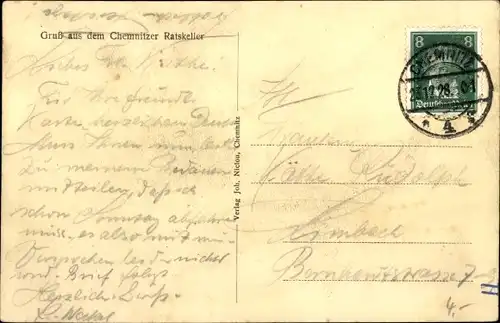 Gruß aus dem Chemnitzer Ratskeller
Liebes Frl. Käthe!
Für Ihre freundl.
Karte herzlichen Dank
Muss Ihnen nun leider
zu meinem Bedauern
mitteilen, dass ich
schon Sonntag abfahren
muss, es also mit
Versprechen leider nichts
wird. Brief folgt
Herzlich
Verlag Joh. Niclou, Chemnitz
8 8
CHEMNITZ
28
4
Fräulein
Käthe Rudolph
Limbach
Bernhardstrasse 7
4,-